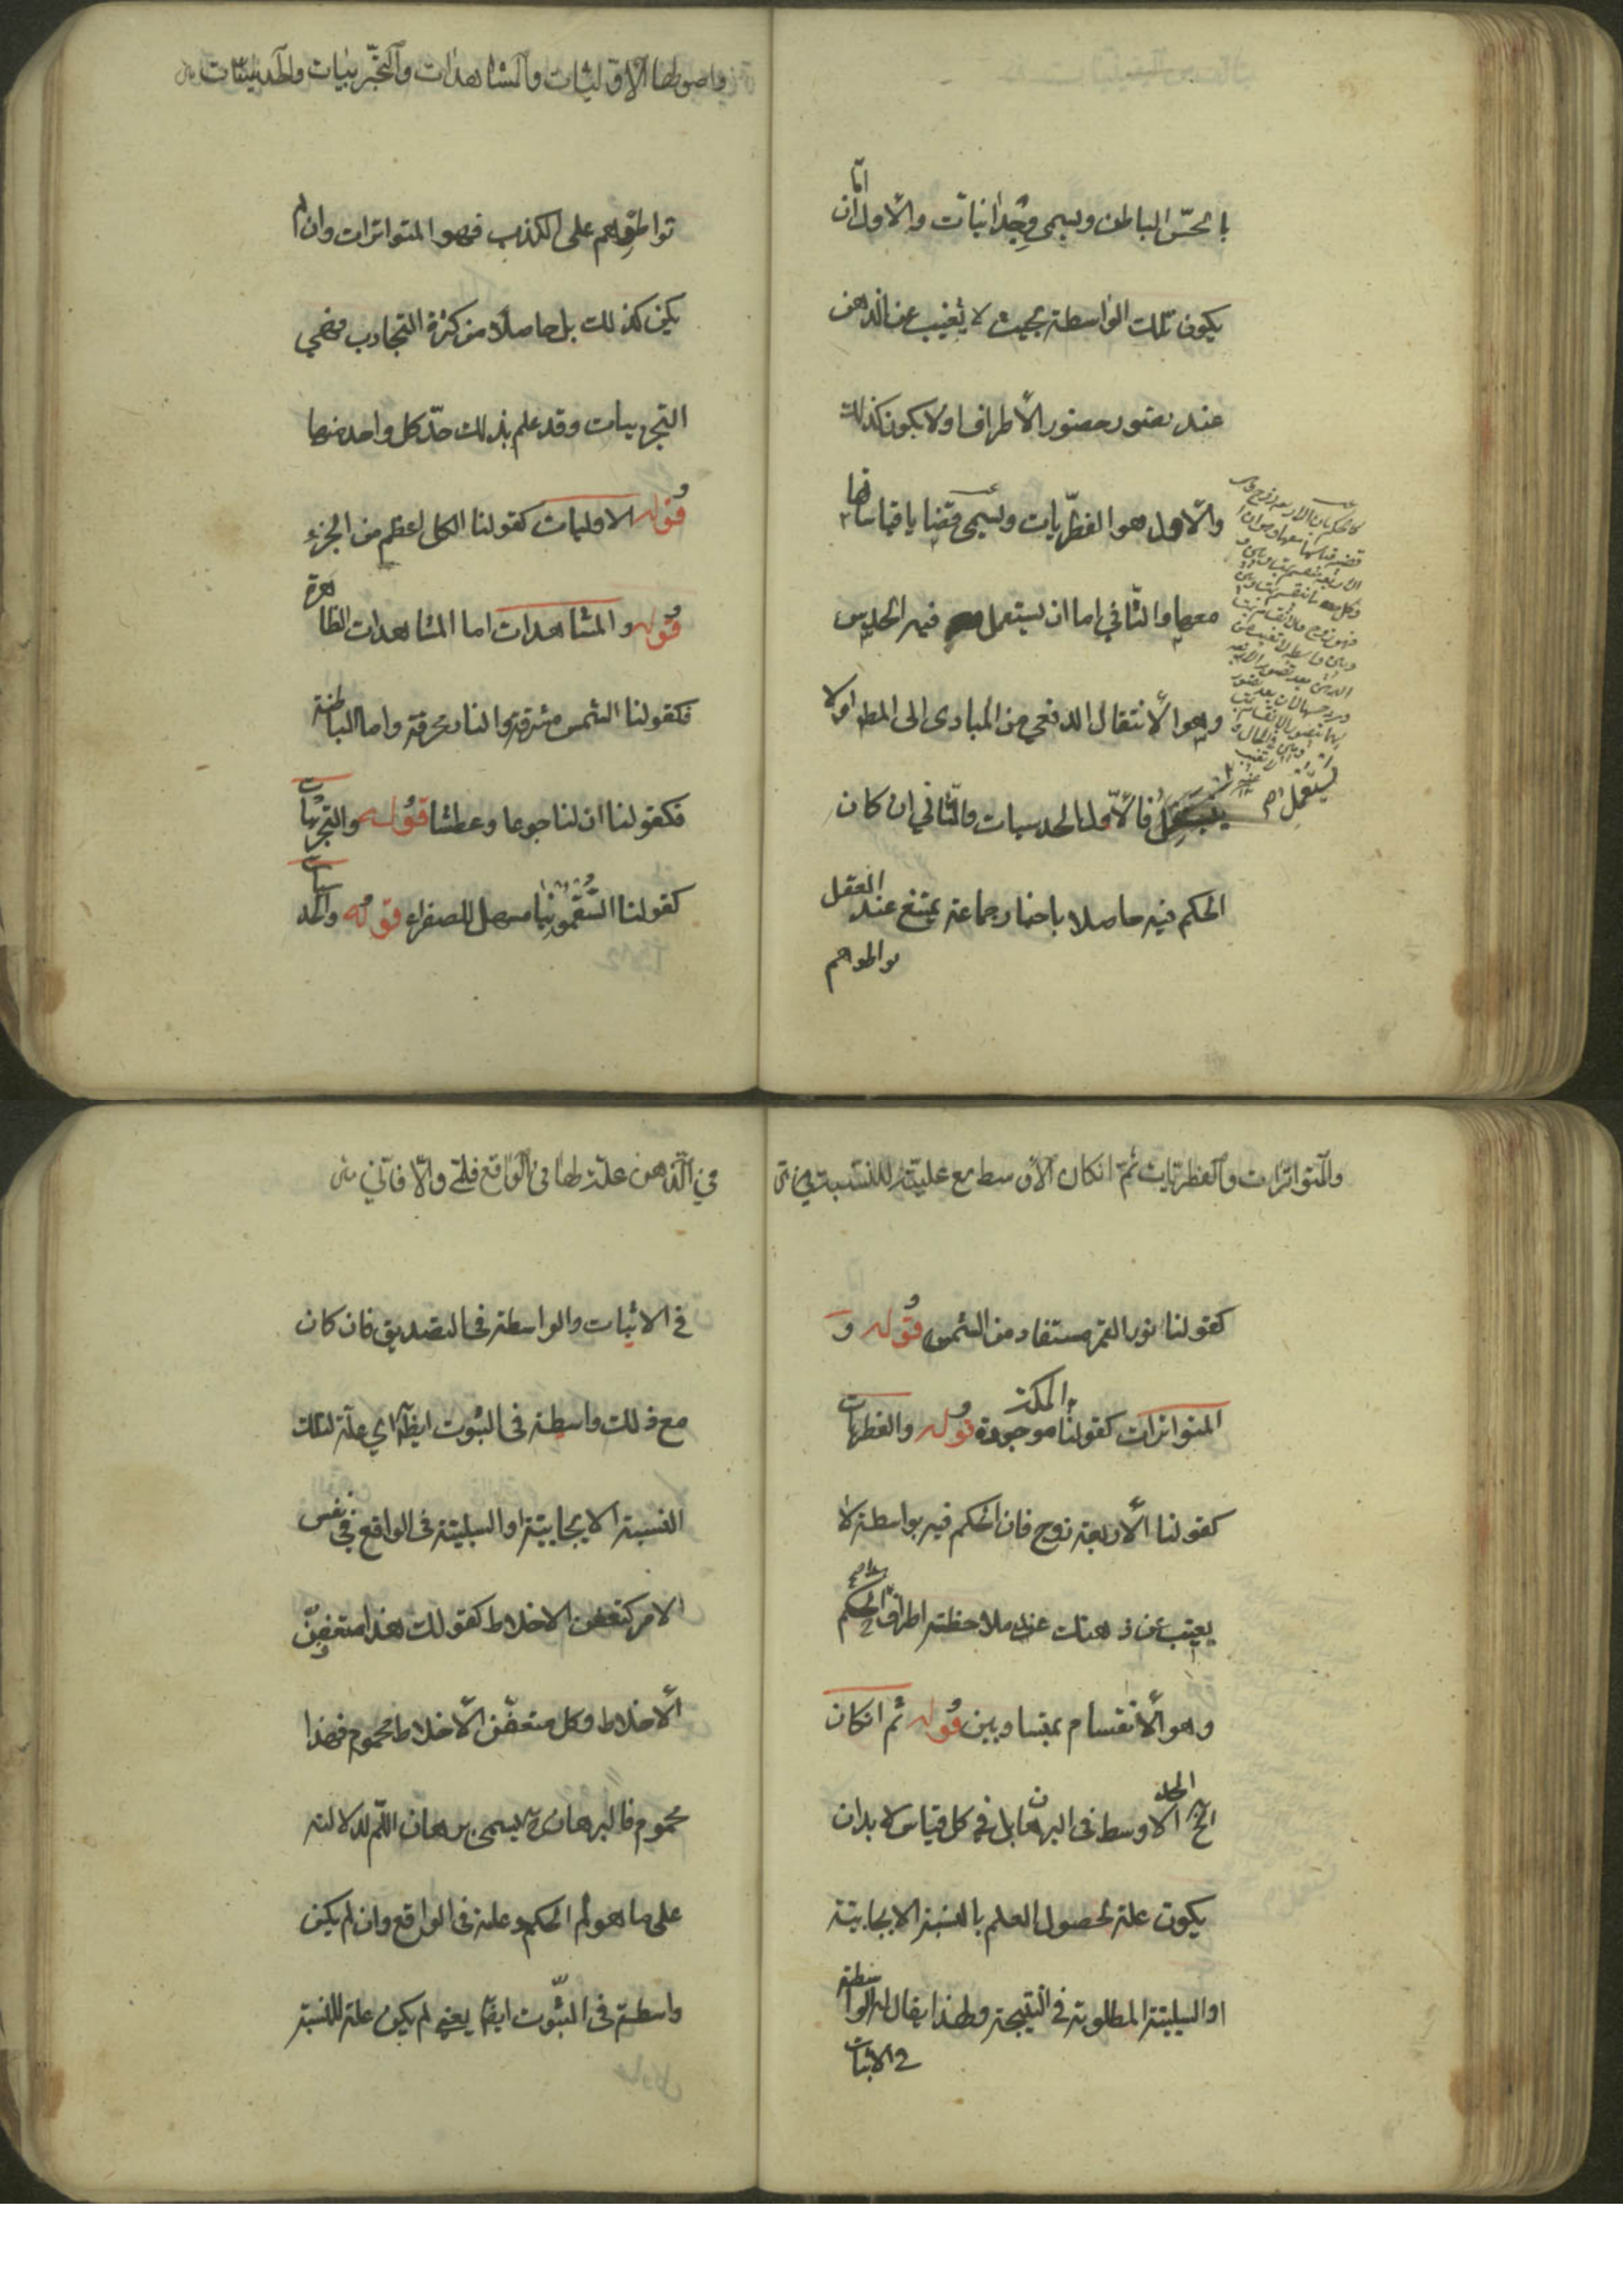 بالحسّ الباطن ويسمى وجدانيات والاول اما ان
يكون تلك الواسطة بحيث لا يغيب عن الذهن
عند تصور حضور الاطراف او لا يكون كذلك
والاول هو الفطريات ويسمى قضايا قياساتها
معها والثاني اما ان يستعمل فيه الحدس
وهو الانتقال الدفعي من المبادى الى المط او لا
يستعمل فالاول الحدسيات والثاني ان كان
الحكم فيه حاصلا باخبار جماعة يمتنع عند العقل
تواطؤهم
واصولها الاوليات والمشاهدات والتجربيات والحدسيات
تواطؤهم على الكذب فهو المتواترات وان لم
يكن كذلك بل حاصلا من كثرة التجارب فهي
التجربيات وقد علم بذلك حدّ كل واحد منها
قوله الاوليات كقولنا الكل اعظم من الجزء
قوله والمشاهدات اما المشاهدات الظاهرة
فكقولنا الشمس مشرقة والنار محرقة واما الباطنة
فكقولنا ان لنا جوعا وعطشا قوله والتجربيات
كقولنا السقمونيا مسهل للصفراء قوله والحدسيات
والمتواترات والفطريات ثم ان كان الاوسط مع علّيته للنسبة
كقولنا نور القمر مستفاد من الشمس قوله و
المتواترات كقولنا المكة موجودة قوله والفطريات
كقولنا الاربعة زوج فان الحكم فيه بواسطة لا
يغيب عن ذهنك عند ملاحظة اطراف الحكم
وهو الانقسام بمتساويين قوله ثم ان كان
الخ الحد الاوسط في البرهان بل في كل قياس لا بد ان
يكون علة لحصول العلم بالنسبة الايجابية
او السلبية المطلوبة في النتيجة ولهذا يقال له الواسطة
في الاثبات
في الذهن علة لها في الواقع فلمّي والا فانّي
في الاثبات والواسطة في التصديق فان كان
مع ذلك واسطة في الثبوت ايضا اي علة لتلك
النسبة الايجابية او السلبية في الواقع في نفس
الامر كتعفن الاخلاط كقولك هذا متعفن
الاخلاط وكل متعفن الاخلاط محموم فهذا
محموم فالبرهان ح يسمى برهان اللم لدلالته
على ما هو لم الحكم وعلة في الواقع وان لم يكن
واسطة في الثبوت ايضا يعني لم يكن علة للنسبة